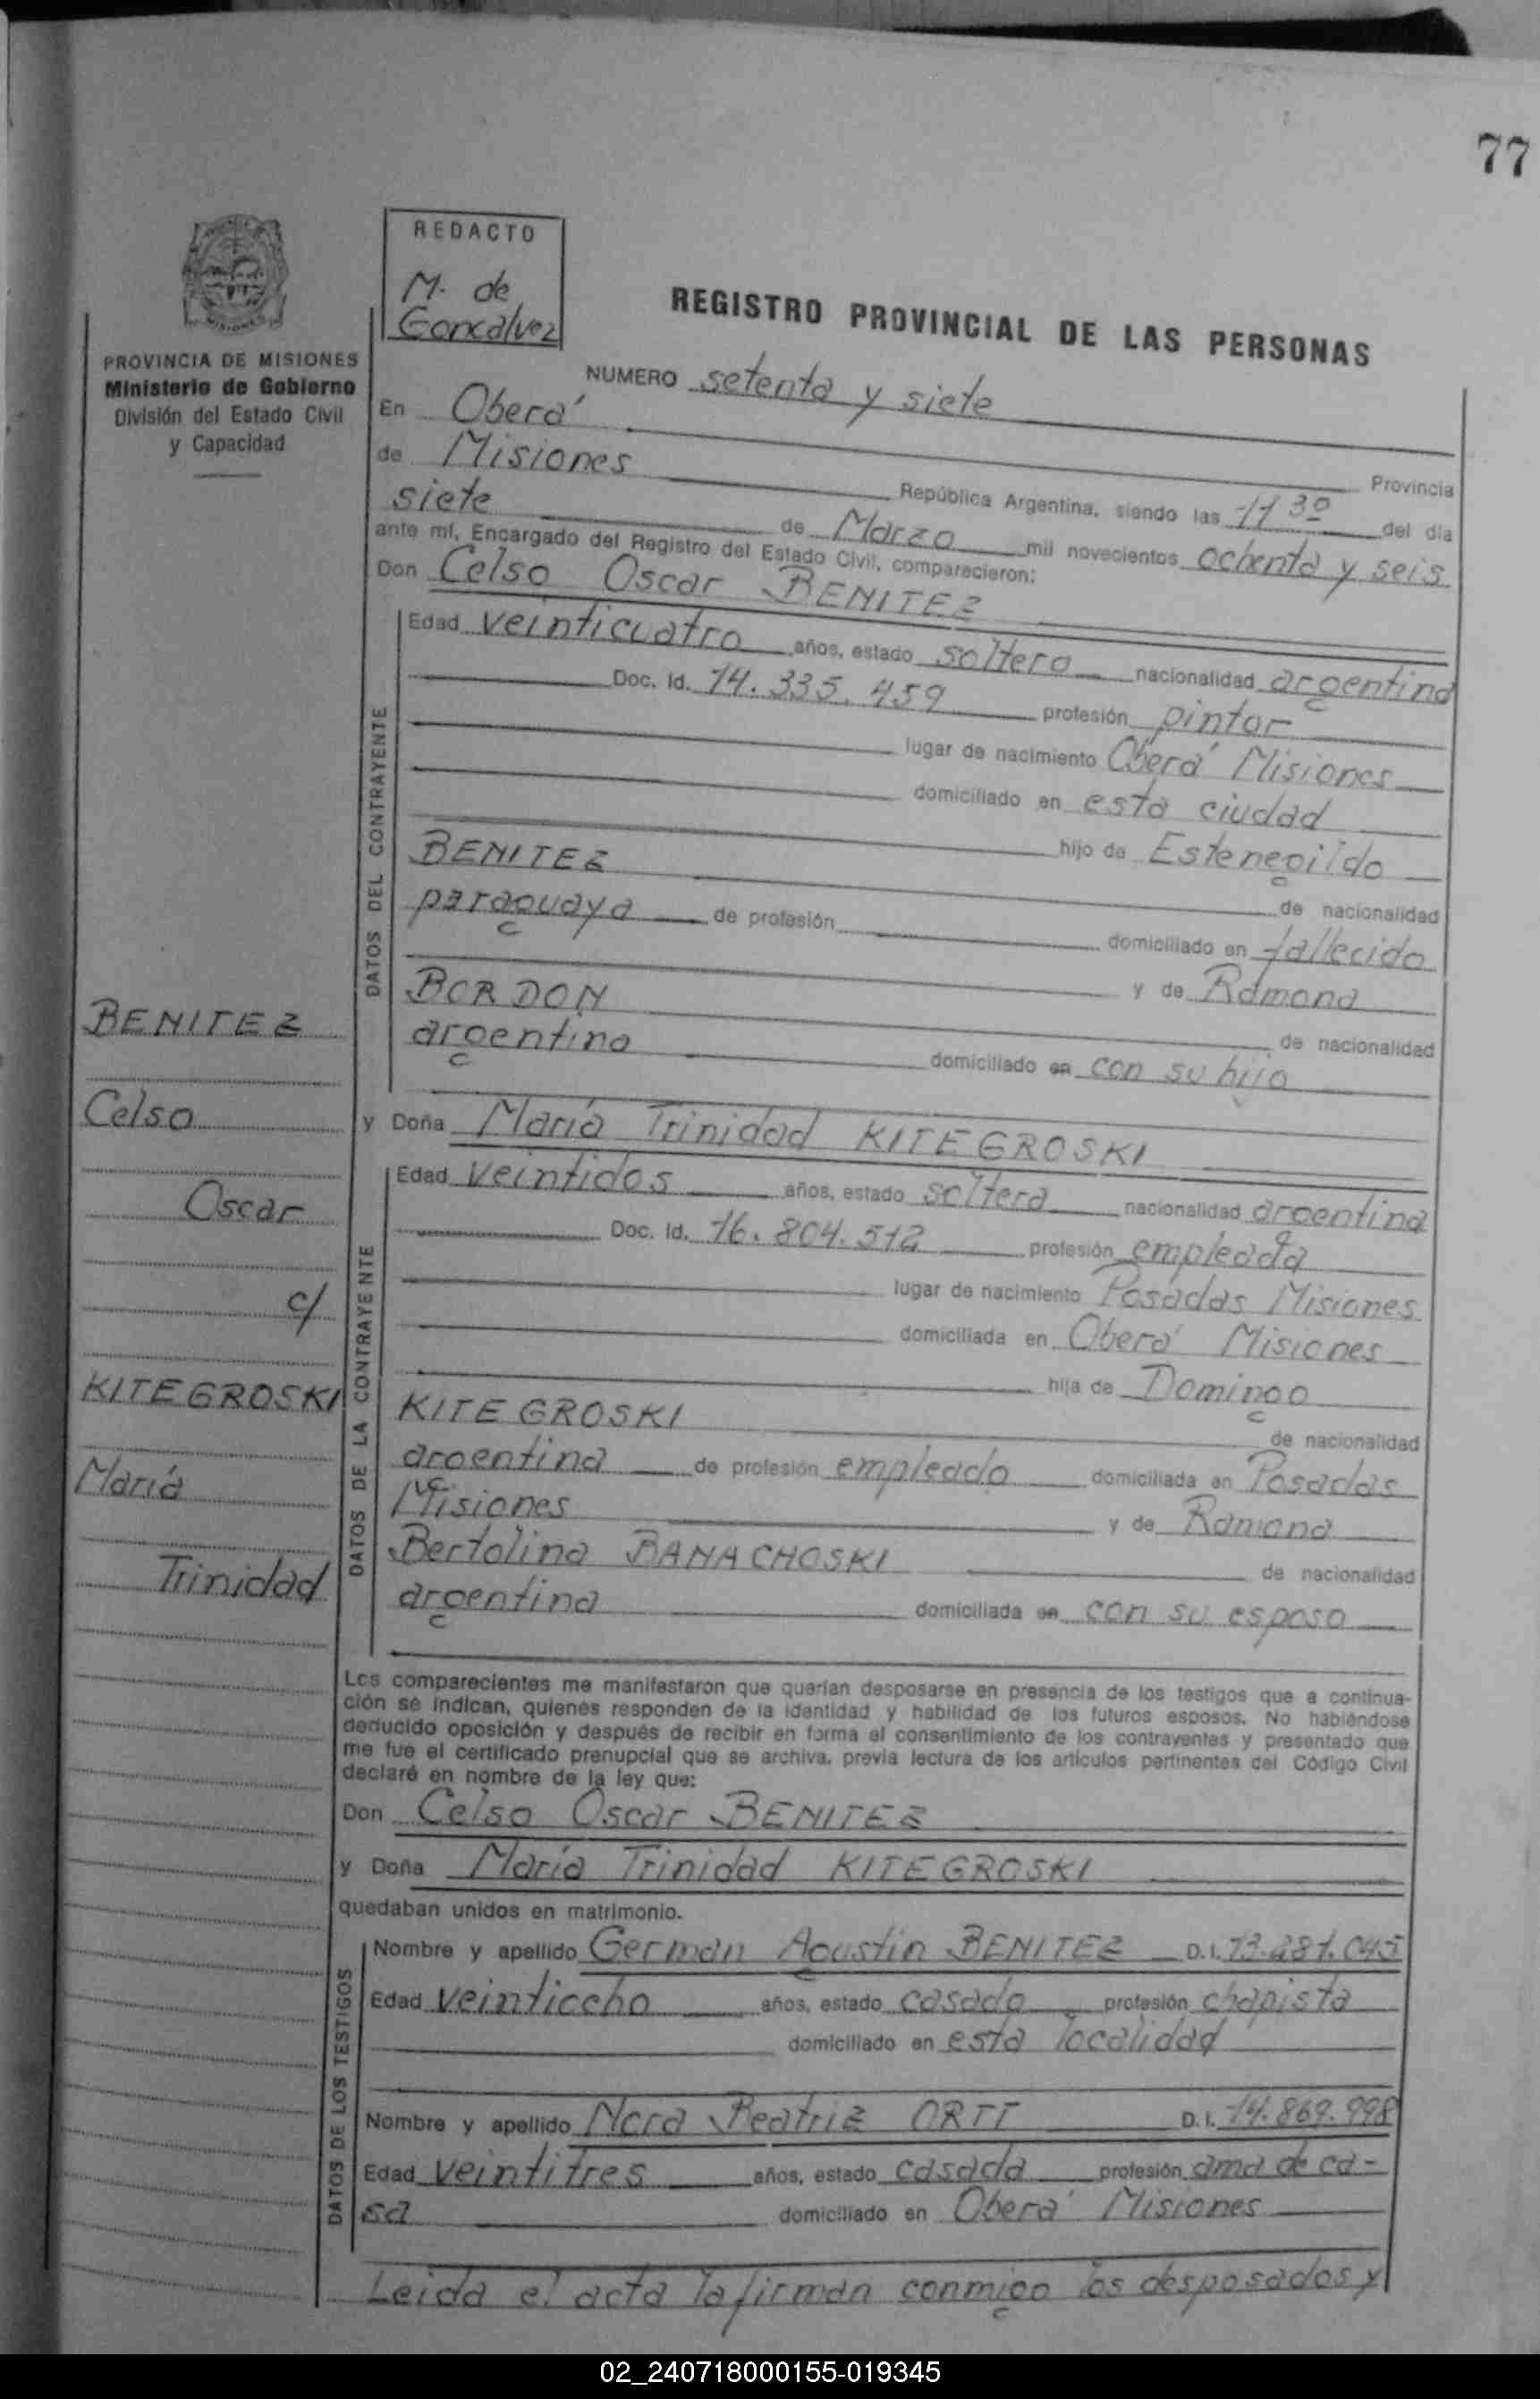 77
REDACTO
M. de
Goncalvez
REGISTRO PROVINCIAL DE LAS PERSONAS
PROVINCIA DE MISIONES
Ministerio de Gobierno
División del Estado Civil
y Capacidad
NUMERO setenta y siete
En Oberá Provincia
de Misiones República Argentina, siendo las 11 30 del día
siete de Marzo mil novecientos ochenta y seis
ante mí, Encargado del Registro del Estado Civil, comparecieron:
Don Celso Oscar BENITEZ
DATOS DEL CONTRAYENTE
Edad veinticuatro años, estado soltero nacionalidad argentina
Doc. Id. 14.335.459 profesión pintor
lugar de nacimiento Oberá Misiones
domiciliado en esta ciudad
hijo de Estenegildo
BENITEZ de nacionalidad
paraguaya de profesión domiciliado en fallecido
y de Ramona
BORDON de nacionalidad
argentina domiciliado en con su hijo
BENITEZ
Celso
Oscar
c/
KITEGROSKI
María
Trinidad
y Doña María Trinidad KITEGROSKI
DATOS DE LA CONTRAYENTE
Edad veintidos años, estado soltera nacionalidad argentina
Doc. Id. 16.804.512 profesión empleada
lugar de nacimiento Posadas Misiones
domiciliada en Oberá Misiones
hija de Domingo
KITEGROSKI de nacionalidad
argentina de profesión empleado domiciliada en Posadas
Misiones y de Ramona
Bertolina BANACHOSKI de nacionalidad
argentina domiciliada en con su esposo
Los comparecientes me manifestaron que querían desposarse en presencia de los testigos que a continua-
ción se indican, quienes responden de la identidad y habilidad de los futuros esposos. No habiéndose
deducido oposición y después de recibir en forma el consentimiento de los contrayentes y presentado que
me fue el certificado prenupcial que se archiva, previa lectura de los artículos pertinentes del Código Civil
declaré en nombre de la ley que:
Don Celso Oscar BENITEZ
y Doña María Trinidad KITEGROSKI
quedaban unidos en matrimonio.
DATOS DE LOS TESTIGOS
Nombre y apellido German Agustin BENITEZ D.I. 13.281.045
Edad veintiocho años, estado casado profesión chapista
domiciliado en esta localidad
Nombre y apellido Nora Beatriz ORTT D.I. 14.869.998
Edad veintitres años, estado casada profesión ama de ca-
sa domiciliado en Oberá Misiones
Leida el acta la firman conmigo los desposados y
02_240718000155-019345